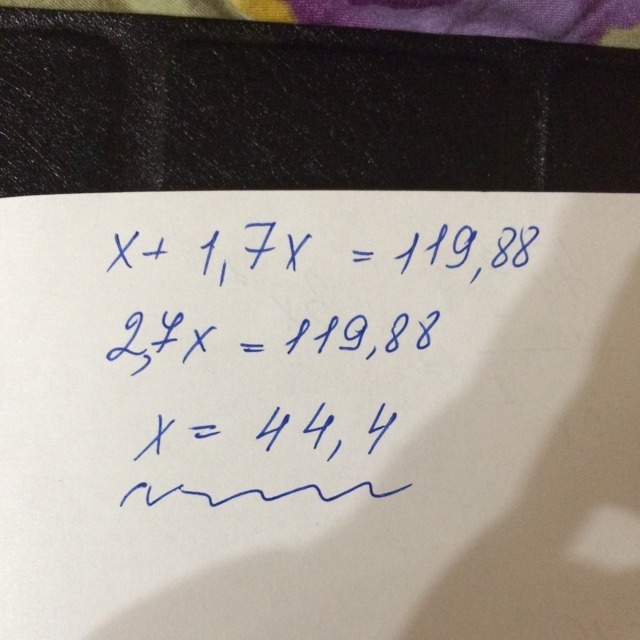 x + 1,7x = 119,88
2,7x = 119,88
x = 44,4